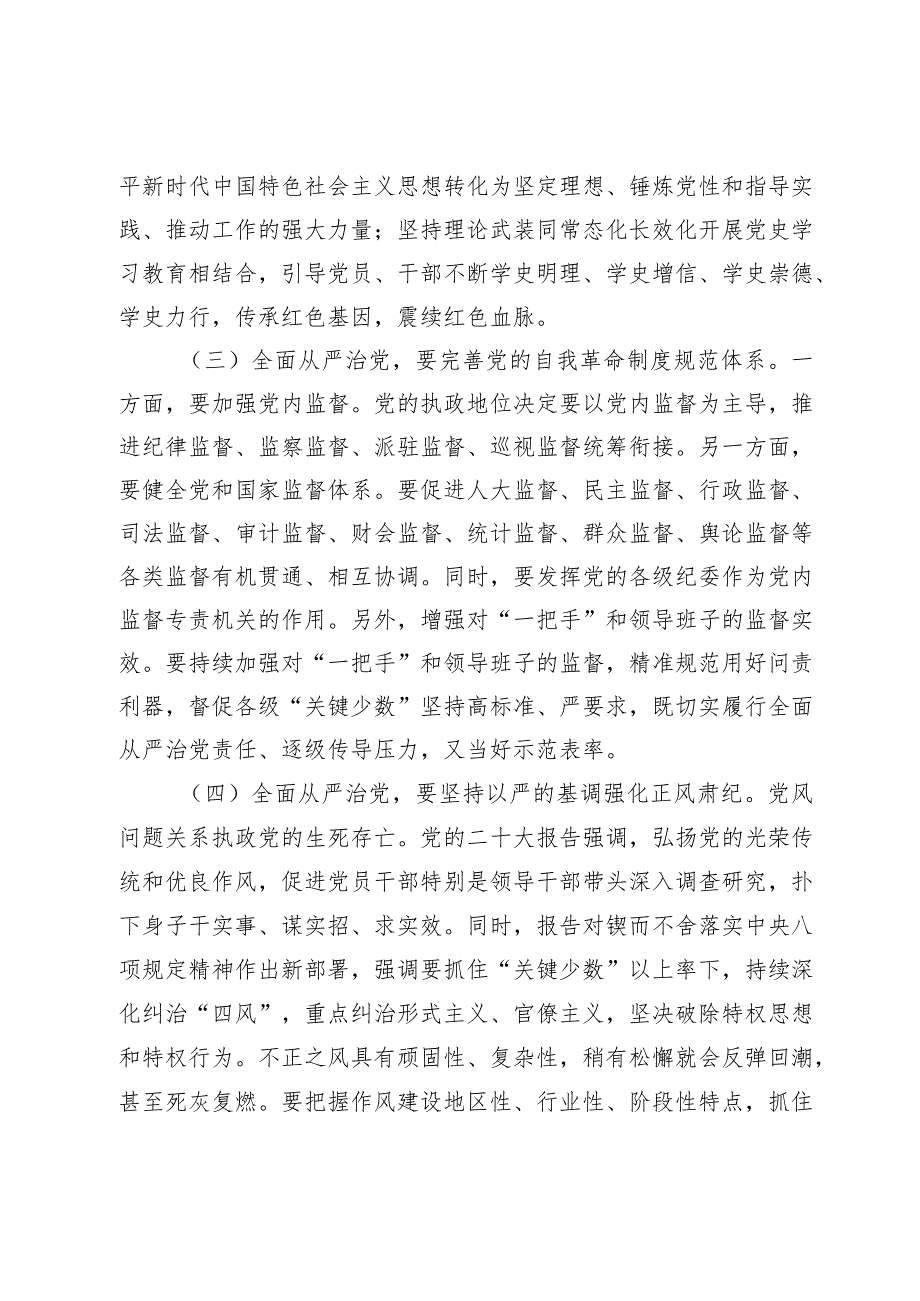 平新时代中国特色社会主义思想转化为坚定理想、锤炼党性和指导实
践、推动工作的强大力量；坚持理论武装同常态化长效化开展党史学
习教育相结合，引导党员、干部不断学史明理、学史增信、学史崇德、
学史力行，传承红色基因，震续红色血脉。
（三）全面从严治党，要完善党的自我革命制度规范体系。一
方面，要加强党内监督。党的执政地位决定要以党内监督为主导，推
进纪律监督、监察监督、派驻监督、巡视监督统筹衔接。另一方面，
要健全党和国家监督体系。要促进人大监督、民主监督、行政监督、
司法监督、审计监督、财会监督、统计监督、群众监督、舆论监督等
各类监督有机贯通、相互协调。同时，要发挥党的各级纪委作为党内
监督专责机关的作用。另外，增强对“一把手”和领导班子的监督实
效。要持续加强对“一把手”和领导班子的监督，精准规范用好问责
利器，督促各级“关键少数”坚持高标准、严要求，既切实履行全面
从严治党责任、逐级传导压力，又当好示范表率。
（四）全面从严治党，要坚持以严的基调强化正风肃纪。党风
问题关系执政党的生死存亡。党的二十大报告强调，弘扬党的光荣传
统和优良作风，促进党员干部特别是领导干部带头深入调查研究，扑
下身子干实事、谋实招、求实效。同时，报告对锲而不舍落实中央八
项规定精神作出新部署，强调要抓住“关键少数”以上率下，持续深
化纠治“四风”，重点纠治形式主义、官僚主义，坚决破除特权思想
和特权行为。不正之风具有顽固性、复杂性，稍有松懈就会反弹回潮，
甚至死灰复燃。要把握作风建设地区性、行业性、阶段性特点，抓住